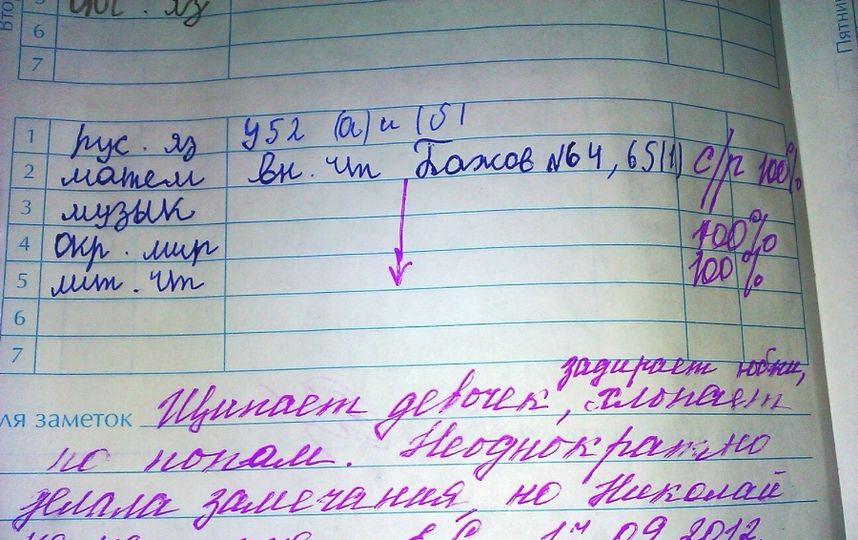 5
яз
6
7
1 рус. яз У52 (а) и 151
2 матем вн. чт Бажов №64, 65(1) с/р 100%
3 музык
4 окр. мир 100%
5 лит. чт 100%
6
7
задирает юбки,
ля заметок Щипает девочек, хлопает
по попам. Неоднократно
делала замечания, но Николай
17.09.2012.